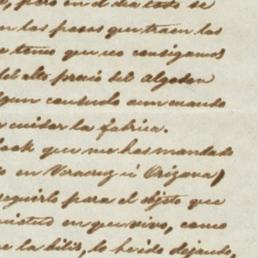 pero en el dia esto se
en las pasas que traen las
temo que no consigamos
del alto precio del algodon
algun consuelo aumentando
cuidar la fabrica.
que me has mandado
en Veracruz ú Orizava,
seguirlo para el objeto que
quietud en que vivo, como
la bilis, lo he ido dejando,